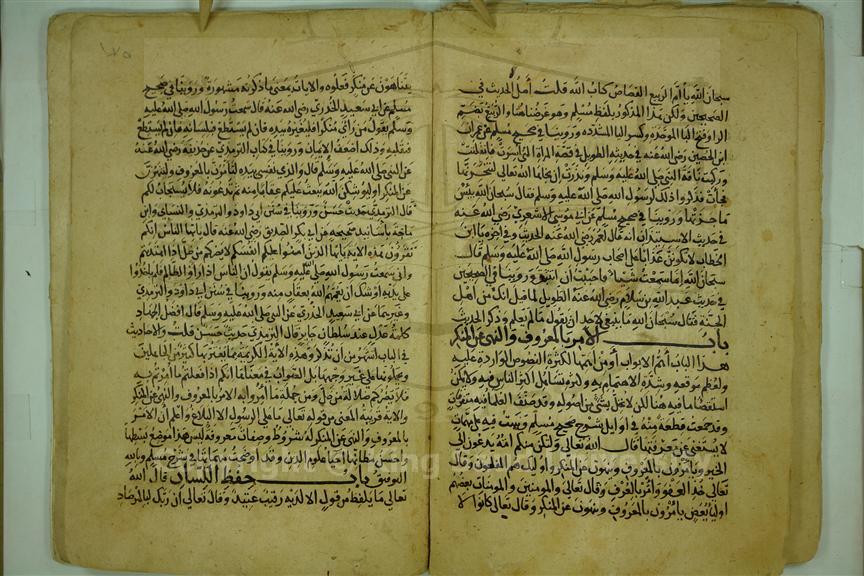 سبحان الله يا ام الربيع القصاص كتاب الله قلت اصل الحديث في
الصحيحين ولكن هذا المذكور بلفظ مسلم وهو غرضنا هنا والربيع بضم
الراء وفتح الباء الموحدة وكسر الياء المشددة وروينا في صحيح مسلم عن عمران
ابن الحصين رضي الله عنه في حديثه الطويل في قصة المراة التي اسرت فانفلتت
وركبت ناقة النبي صلى الله عليه وسلم ونذرت ان نجاها الله تعالى لتنحرنها
فجات فذكروا ذلك لرسول الله صلى الله عليه وسلم فقال سبحان الله بئس
ما جزتها وروينا في صحيح مسلم عن ابي موسى الاشعري رضي الله عنه
في حديث الاستيذان انه قال لعمر رضي الله عنه الحديث وفي اخره يا ابن
الخطاب لا تكونن عذابا على اصحاب رسول الله صلى الله عليه وسلم قال
سبحان الله انما سمعت شيا فاحببت ان اتثبت وروينا في الصحيحين
في حديث عبد الله بن سلام رضي الله عنه الطويل لما قيل انك من اهل
الجنة فقال سبحان الله ما ينبغي لاحد ان يقول ما لم يعلم وذكر الحديث
باب الامر بالمعروف والنهي عن المنكر
هذا الباب اهم الابواب او من اهمها لكثرة النصوص الواردة فيه
ولعظم موقعه وشدة الاهتمام به وكثرة تساهل اكثر الناس فيه ولا يمكن
استقصا ما فيه هنا لكن لا نخل بشي من اصوله وقد صنف العلما فيه متفرقات
وقد جمعت قطعة منه في اوايل شرح صحيح مسلم ونبهت فيه على مهمات
لا يستغنى عن معرفتها قال الله تعالى ولتكن منكم امة يدعون الى
الخير ويامرون بالمعروف وينهون عن المنكر واوليك هم المفلحون وقال
تعالى خذ العفو وامر بالعرف وقال تعالى والمومنون والمومنات بعضهم
اوليا بعض يامرون بالمعروف وينهون عن المنكر وقال تعالى كانوا لا
يتناهون عن منكر فعلوه والايات بمعنى ما ذكرته مشهورة وروينا في صحيح
مسلم عن ابي سعيد الخدري رضي الله عنه قال سمعت رسول الله صلى الله عليه
وسلم يقول من راى منكم منكرا فليغيره بيده فان لم يستطع فبلسانه فان لم يستطع
فبقلبه وذلك اضعف الايمان وروينا في كتاب الترمذي عن حذيفة رضي الله عنه
عن النبي صلى الله عليه وسلم قال والذي نفسي بيده لتامرن بالمعروف ولتنهون
عن المنكر او ليوشكن الله يبعث عليكم عقابا منه ثم تدعونه فلا يستجاب لكم
قال الترمذي حديث حسن وروينا في سنن ابي داود والترمذي والنسائي وابن
ماجة باسانيد صحيحة عن ابي بكر الصديق رضي الله عنه قال يا ايها الناس انكم
تقرؤن هذه الاية يا ايها الذين امنوا عليكم انفسكم لا يضركم من ضل اذا اهتديتم
واني سمعت رسول الله صلى الله عليه وسلم يقول ان الناس اذا راوا الظالم فلم ياخذوا
على يديه اوشك ان يعمهم الله بعقاب منه وروينا في سنن ابي داود والترمذي
وغيرهما عن ابي سعيد الخدري عن النبي صلى الله عليه وسلم قال افضل الجهاد
كلمة عدل عند سلطان جاير قال الترمذي حديث حسن قلت والاحاديث
في الباب اشهر من ان تذكر وهذه الاية الكريمة مما يغتر بها كثير من الجاهلين
ويحملونها على غير وجهها بل الصواب في معناها انكم اذا فعلتم ما امرتم به
فلا تضركم ضلالة من ضل ومن جملة ما امروا به الامر بالمعروف والنهي عن المنكر
والاية قريبة المعنى من قوله تعالى ما على الرسول الا البلاغ واعلم ان الامر
بالمعروف والنهي عن المنكر له شروط وصفات معروفة ليس هذا موضع بسطها
واحسن مظانها احيا علوم الدين وقد اوضحت مهماتها في شرح مسلم وبالله
التوفيق باب حفظ اللسان قال الله
تعالى ما يلفظ من قول الا لديه رقيب عتيد وقال تعالى ان ربك لبالمرصاد